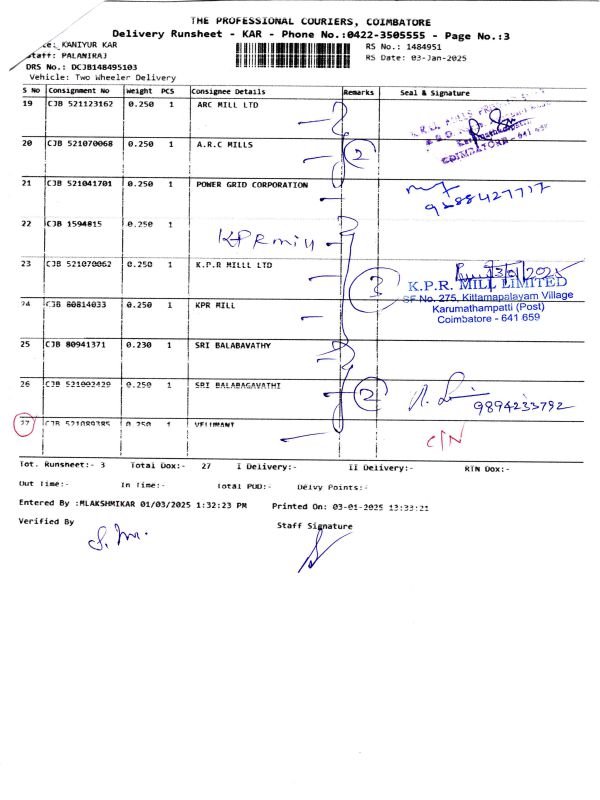 THE PROFESSIONAL COURIERS, COIMBATORE
Delivery Runsheet - KAR - Phone No.:0422-3505555 - Page No.:3
KANIYUR KAR
RS No.: 1484951
Staff: PALANIRAJ
RS Date: 03-Jan-2025
DRS No.: DCJB148495103
Vehicle: Two Wheeler Delivery
S No Consignment No Weight PCS Consignee Details Remarks Seal & Signature
19 CJB 521123162 0.250 1 ARC MILL LTD
20 CJB 521070068 0.250 1 A.R.C MILLS 2
COIMBATORE - 641 659
21 CJB 521041701 0.250 1 POWER GRID CORPORATION
9288427717
22 CJB 1594815 0.250 1
KPR mill
23 CJB 521070062 0.250 1 K.P.R MILLL LTD
3/01/2025
3 K.P.R. MILL LIMITED
SF No. 275, Kittampalayam Village
24 CJB 80814033 0.250 1 KPR MILL
Karumathampatti (Post)
Coimbatore - 641 659
25 CJB 80941371 0.230 1 SRI BALABAVATHY
26 CJB 521002429 0.250 1 SRI BALABAGAVATHI 2
9894233792
27 CJB 521089385 0.250 1 VELUMANI
C/N
Tot. Runsheet:- 3 Total Dox:- 27 I Delivery:- II Delivery:- RTN Dox:-
Out Time:- In Time:- Total POD:- Delvy Points:-
Entered By :MLAKSHMIKAR 01/03/2025 1:32:23 PM Printed On: 03-01-2025 13:33:21
Verified By
Staff Signature